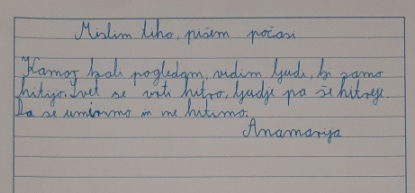 Mislim tiho, pišem počasi
Kamor koli pogledam, vidim ljudi, ki samo
hitijo. Svet se vrti hitro, ljudje pa še hitreje.
Da se umirimo in ne hitimo.
Anamarija